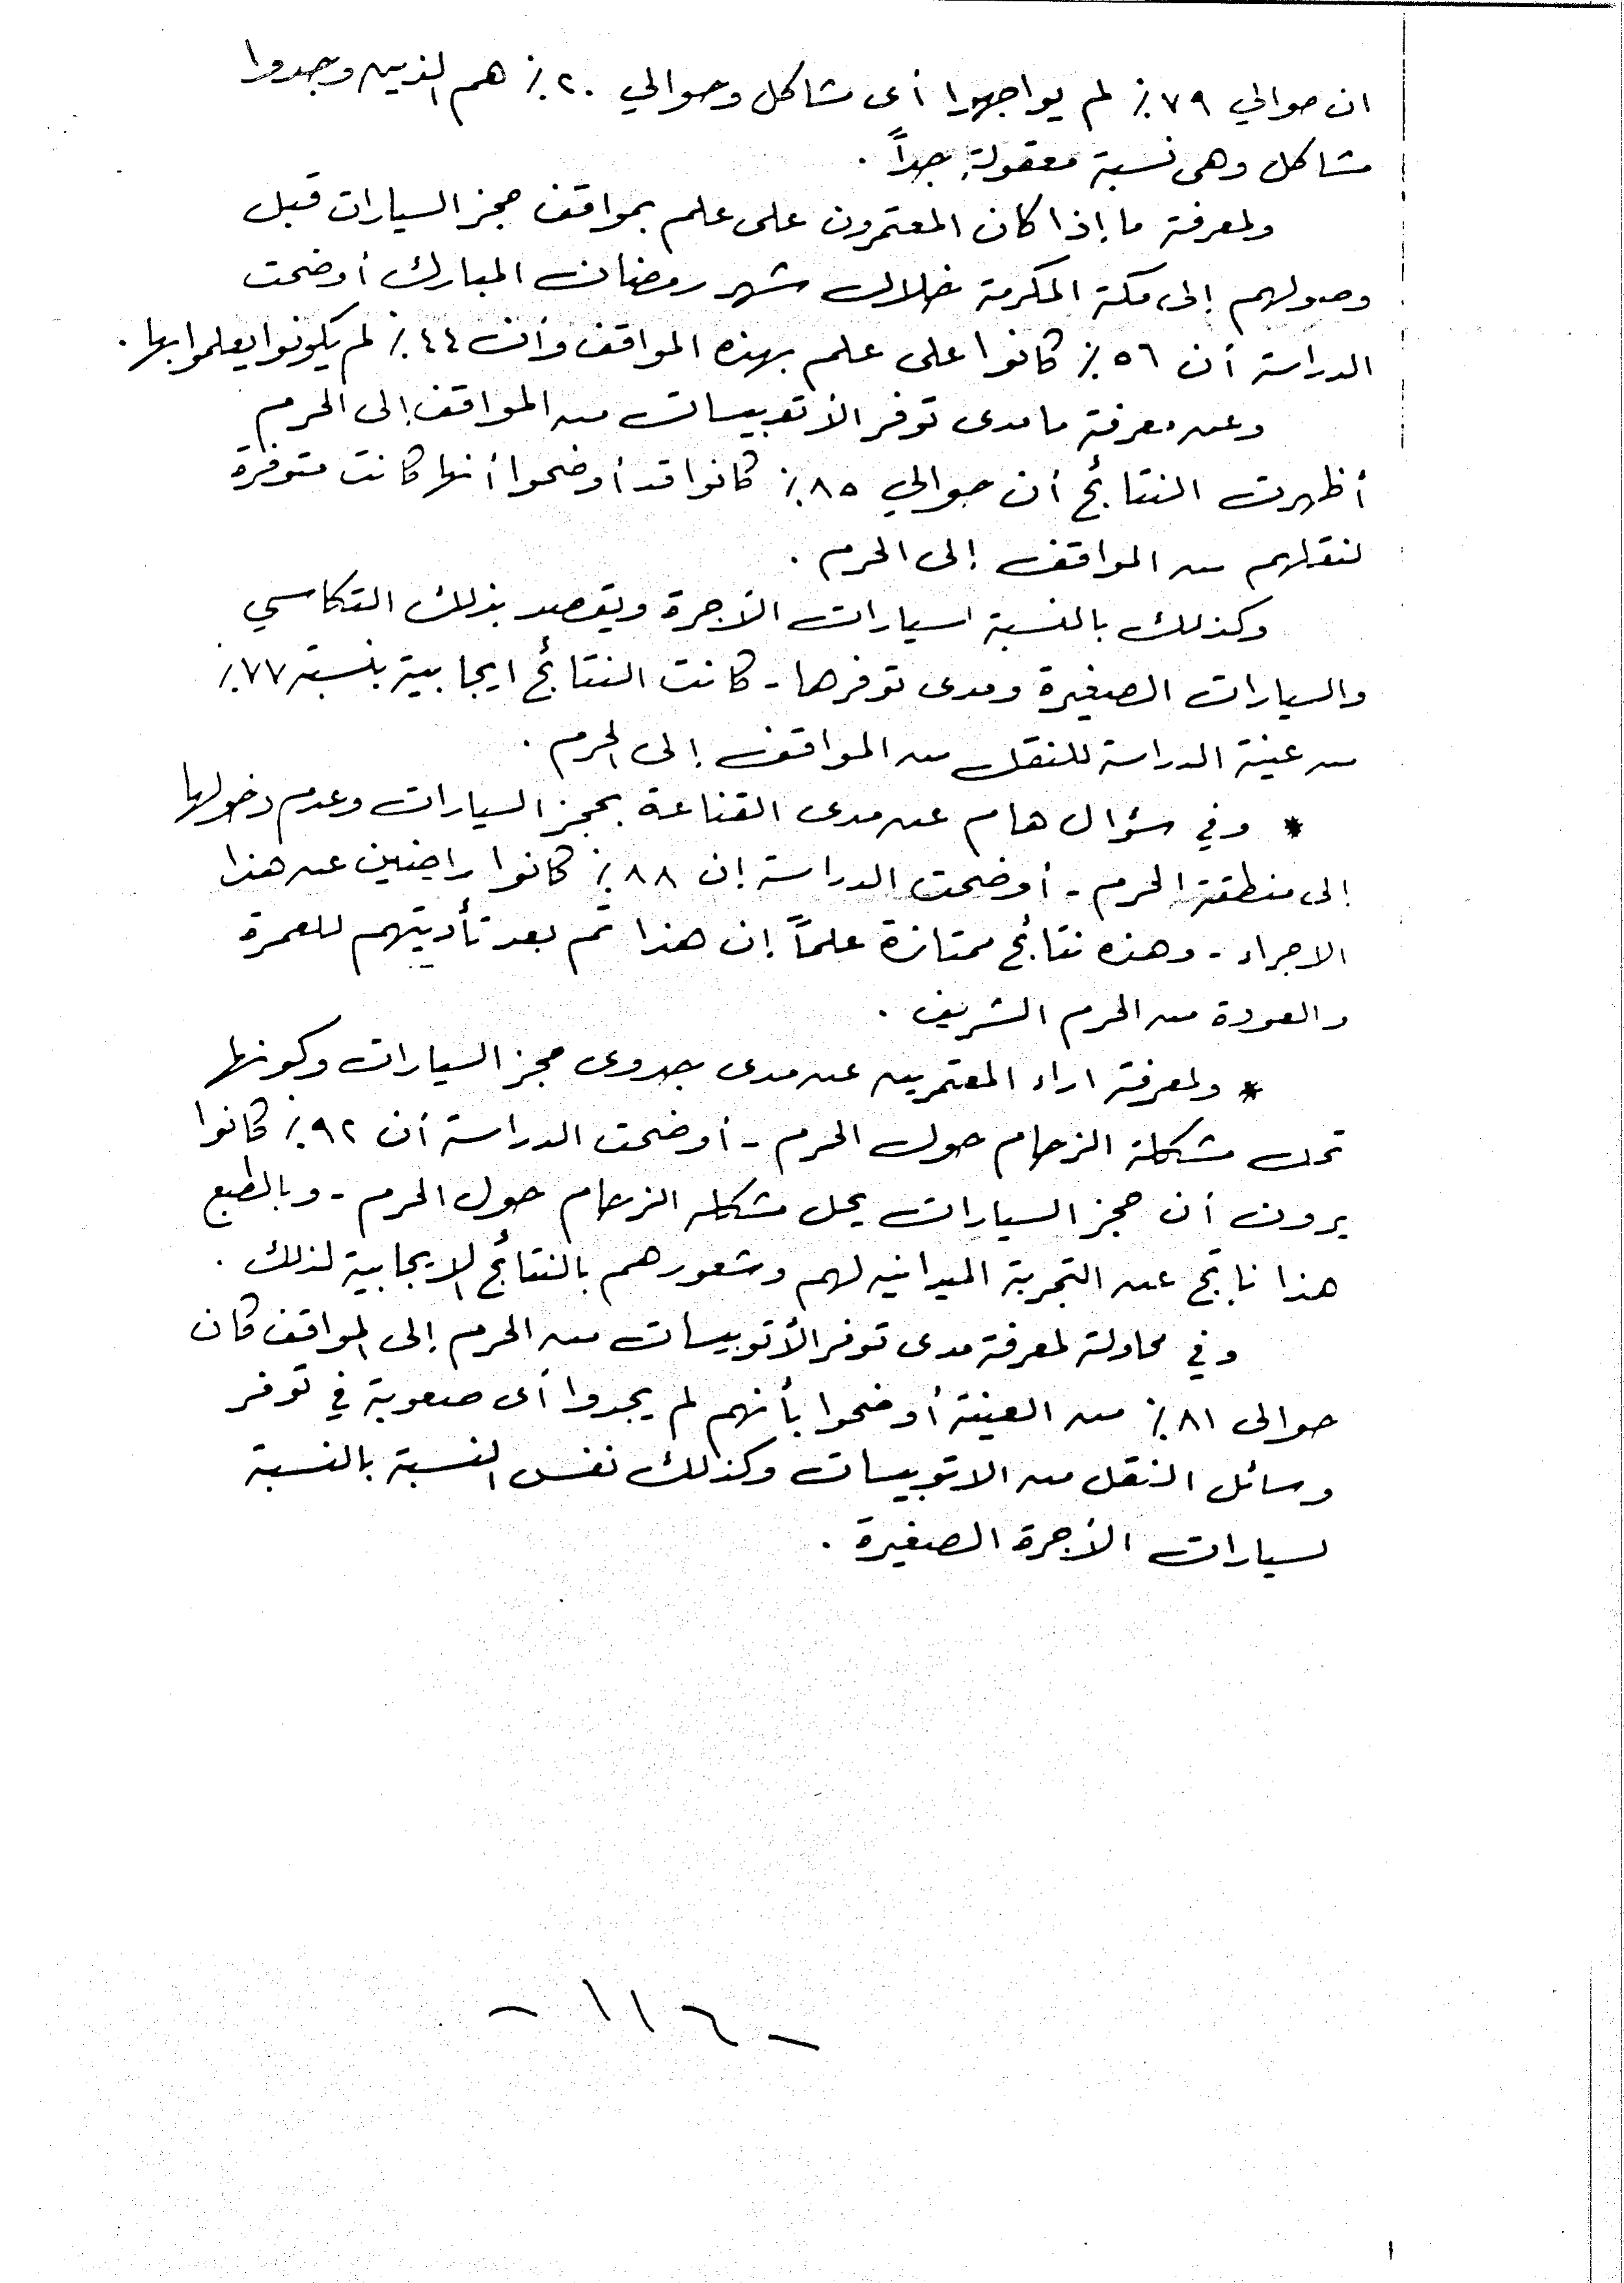 ان حوالي ٧٩٪ لم يواجهوا أى مشاكل وحوالي ٢٠٪ هم الذين وجدوا
مشاكل وهى نسبة معقولة جداً .
ولمعرفة ما إذا كان المعتمرون على علم بمواقف حجز السيارات قبل
وصولهم إلى مكة المكرمة خلال شهر رمضان المبارك أوضحت
الدراسة أن ٥٦٪ كانوا على علم بهذه المواقف وأن ٤٤٪ لم يكونوا يعلموا بها .
وعن معرفة ما مدى توفر الأتوبيسات من المواقف إلى الحرم
أظهرت النتائج أن حوالي ٨٥٪ كانوا قد أوضحوا أنها كانت متوفرة
لنقلهم من المواقف إلى الحرم .
وكذلك بالنسبة لسيارات الأجرة ويقصد بذلك التكاسي
والسيارات الصغيرة ومدى توفرها - كانت النتائج ايجابية بنسبة ٧٧٪
من عينة الدراسة للنقل من المواقف إلى الحرم .
* وفي سؤال هام عن مدى القناعة بحجز السيارات وعدم دخولها
إلى منطقة الحرم - أوضحت الدراسة إن ٨٨٪ كانوا راضين عن هذا
الاجراء - وهذه نتائج ممتازة علماً إن هذا تم بعد تأديتهم للعمرة
والعودة من الحرم الشريف .
* ولمعرفة اراء المعتمرين عن مدى جدوى حجز السيارات وكونها
تحل مشكلة الزحام حول الحرم - أوضحت الدراسة أن ٩٢٪ كانوا
يرون أن حجز السيارات يحل مشكله الزحام حول الحرم - وبالطبع
هذا ناتج عن التجربة الميدانيه لهم وشعورهم بالنتائج الايجابية لذلك .
وفي محاولة لمعرفة مدى توفر الأتوبيسات من الحرم إلى المواقف كان
حوالى ٨١٪ من العينة أوضحوا بأنهم لم يجدوا أى صعوبة في توفر
وسائل النقل من الاتوبيسات وكذلك نفس النسبة بالنسبة
لسيارات الأجرة الصغيرة .
- ١١٦ -